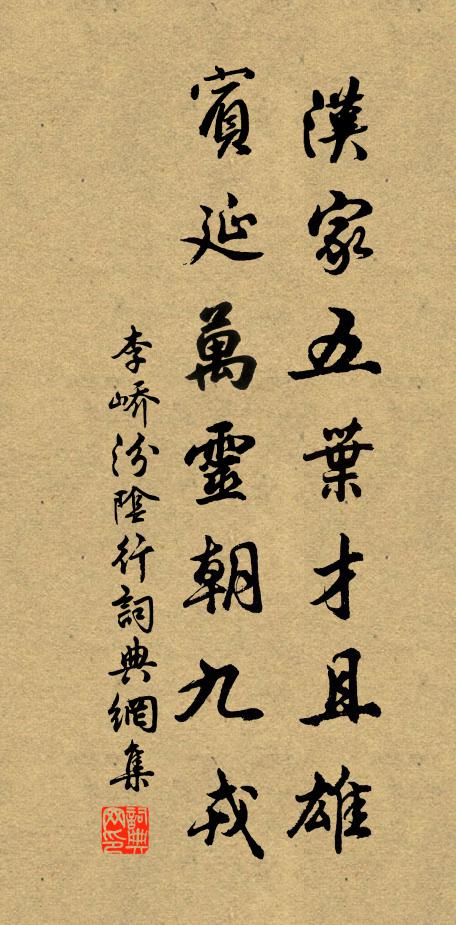 漢家五葉才且雄
賓延萬靈朝九戎
李嶠汾陰行詞典網集
詞典网印